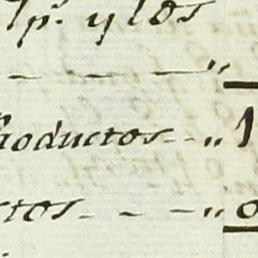 p.^r y los
- - - "
Productos - - " 1
ctos - - - " 0